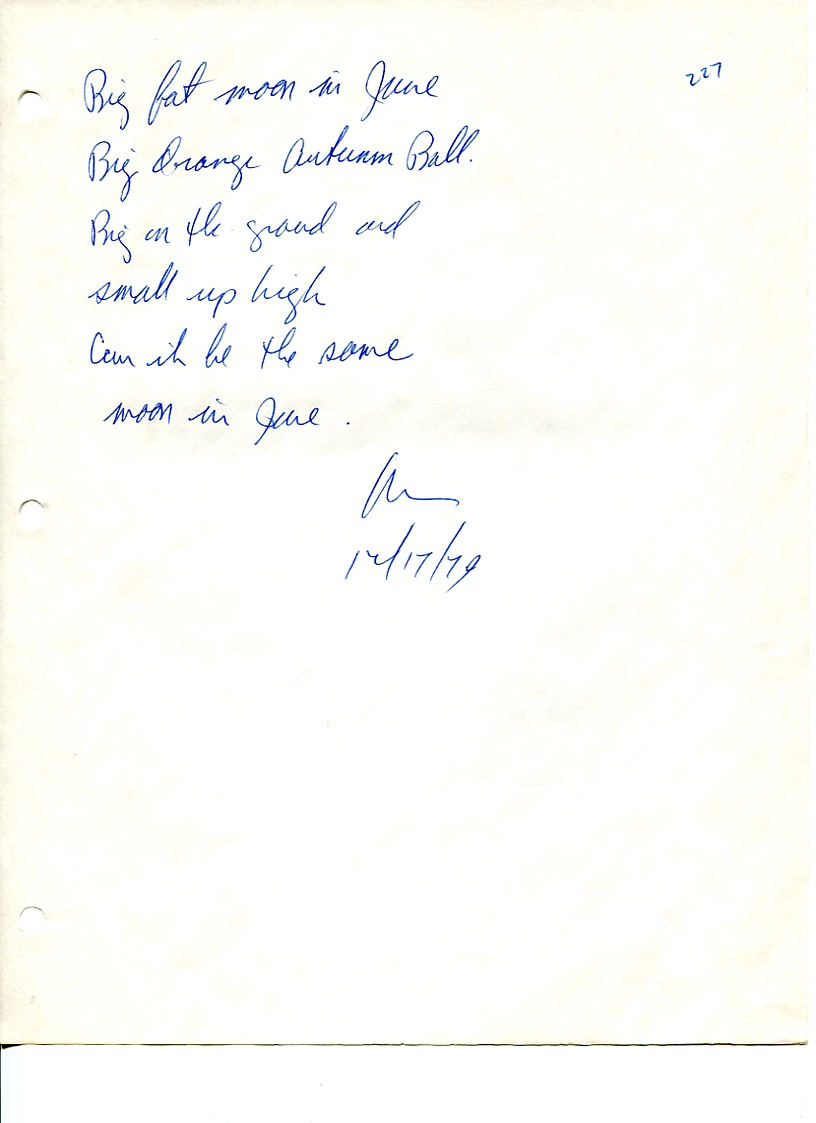 227
Big fat moon in June
Big Orange Autumn Ball.
Big on the ground and
small up high
Can it be the same
moon in June.
12/17/79